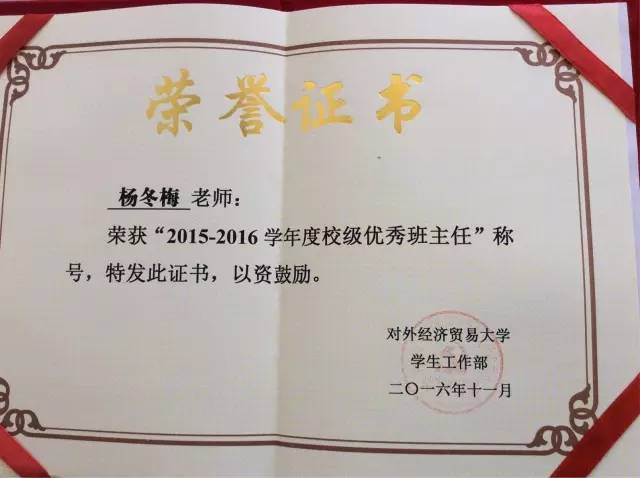 荣誉证书
杨冬梅 老师：
荣获“2015-2016 学年度校级优秀班主任”称
号，特发此证书，以资鼓励。
对外经济贸易大学
学生工作部
二〇一六年十一月